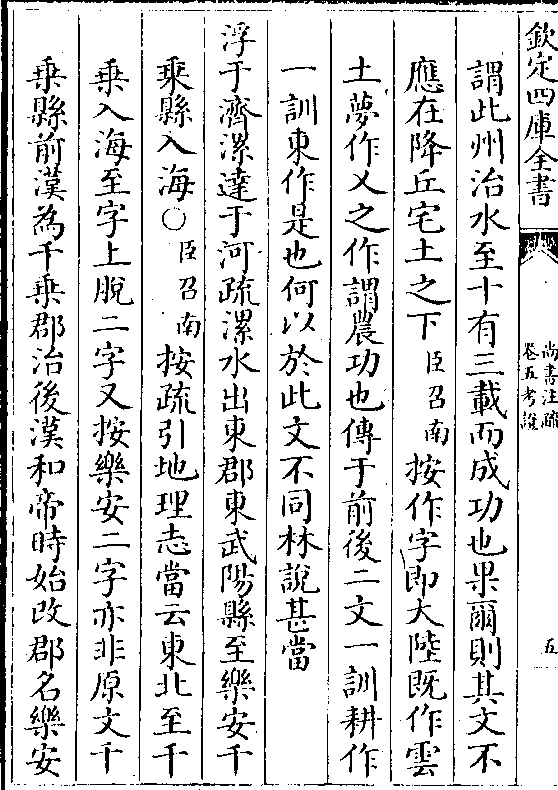 欽定四庫全書
尚書注疏
卷五考證
五
謂此州治水至十有三載而成功也果爾則其文不
應在降丘宅土之下臣召南按作字即大陸既作雲
土夢作乂之作謂農功也傳于前後二文一訓耕作
一訓東作是也何以於此文不同林說甚當
浮于濟漯達于河疏漯水出東郡東武陽縣至樂安千
乘縣入海○臣召南按疏引地理志當云東北至千
乘入海至字上脫二字又按樂安二字亦非原文千
乗縣前漢為千乗郡治後漢和帝時始改郡名樂安